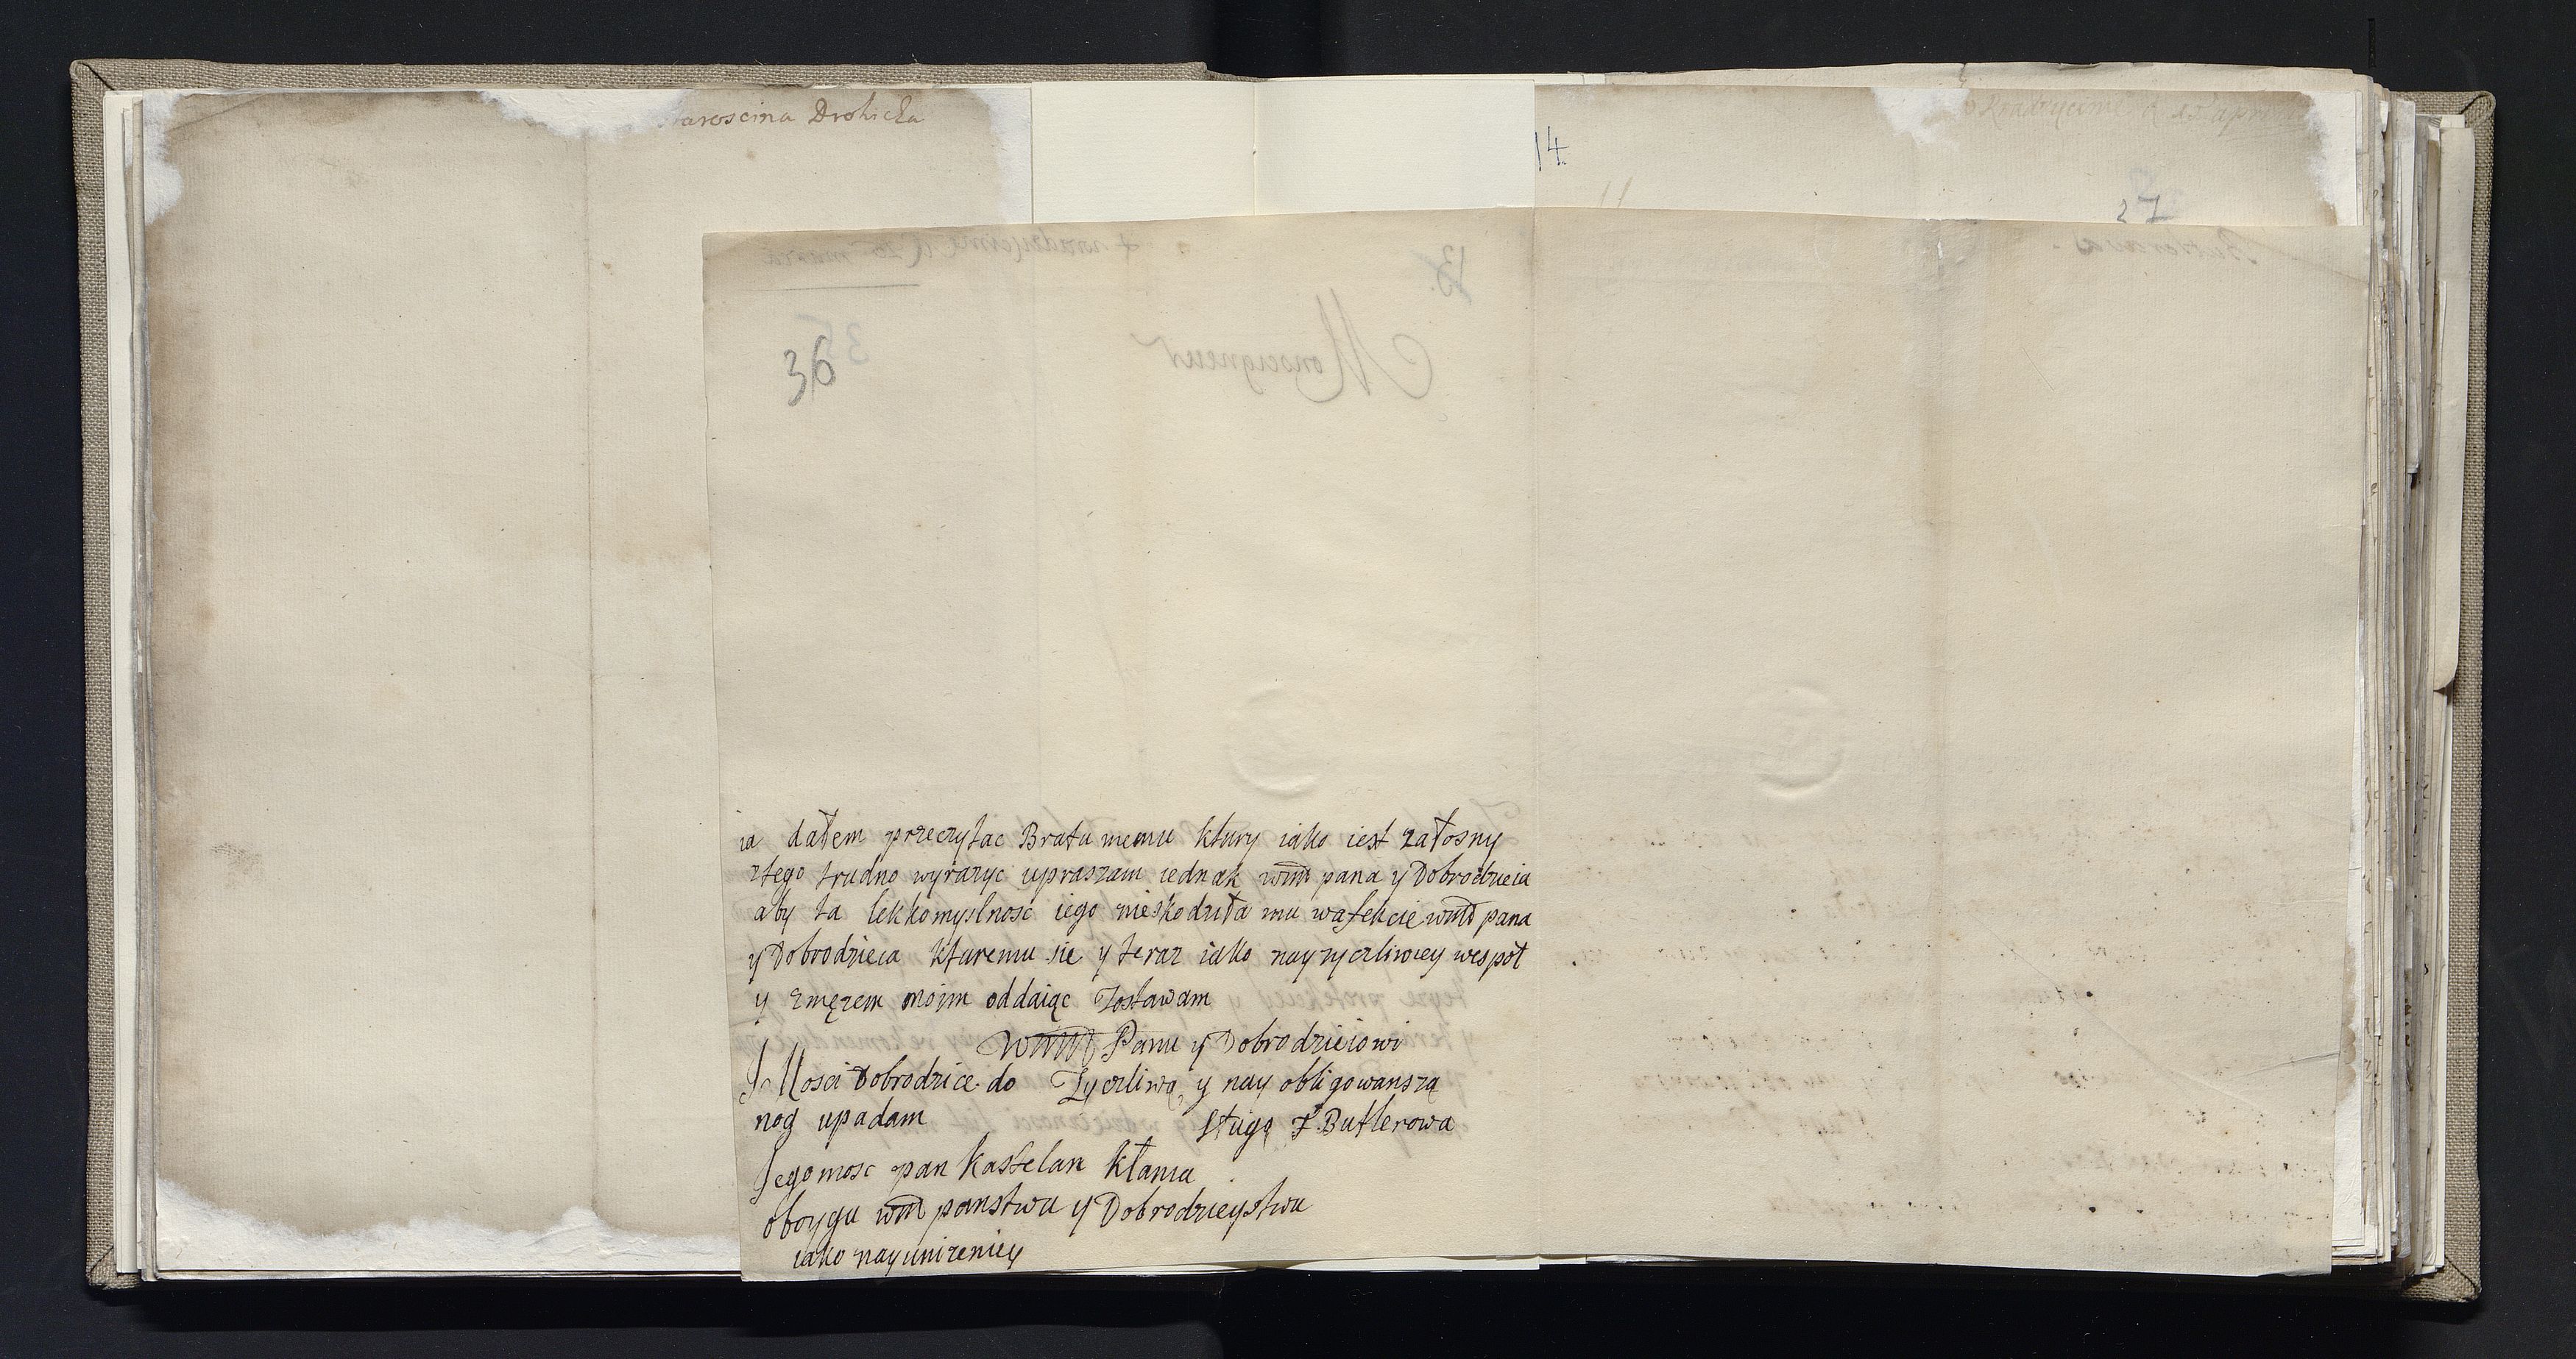 aroscina Drohicka
14.
27
36
ia dałem przeczytac Bratu memu ktury iako iest załosny
ztego trudno wyrazyc upraszam iednak wm pana y Dobrodzieia
aby ta lekkomyslnosc iego nieskodziła mu wafekcie wm pana
y Dobrodzieia kturemu sie y teraz iako nayzyczliwiey wespoł
y zmęzem moim oddaiąc Zostawam
Panu y Dobrodzieiowi
J Mosci Dobrodzice do Zyczliwą y nay obligowanszą
nog upadam sługą F Butlerowa
Jegomosc pan kastelan kłania
oboygu wm panstwu y Dobrodzieystwu
iako nayunizeniey